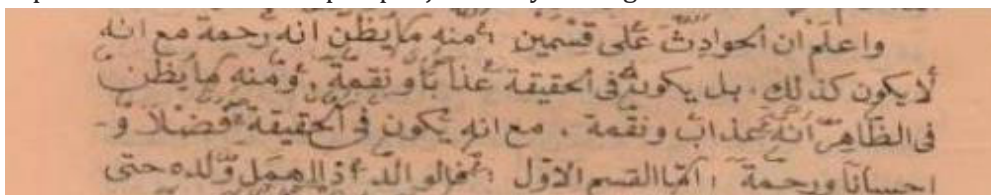 واعلم ان الحوادث على قسمين : منه ما يظن انه رحمة مع انه
لا يكون كذلك ، بل يكون في الحقيقة عذابا ونقمة ، ومنه ما يظن
في الظاهر انه عذاب ونقمة ، مع انه يكون في الحقيقة فضلا و-
احسانا ورحمة ، اما القسم الاول : فالوالد اذا اهمل ولده حتى